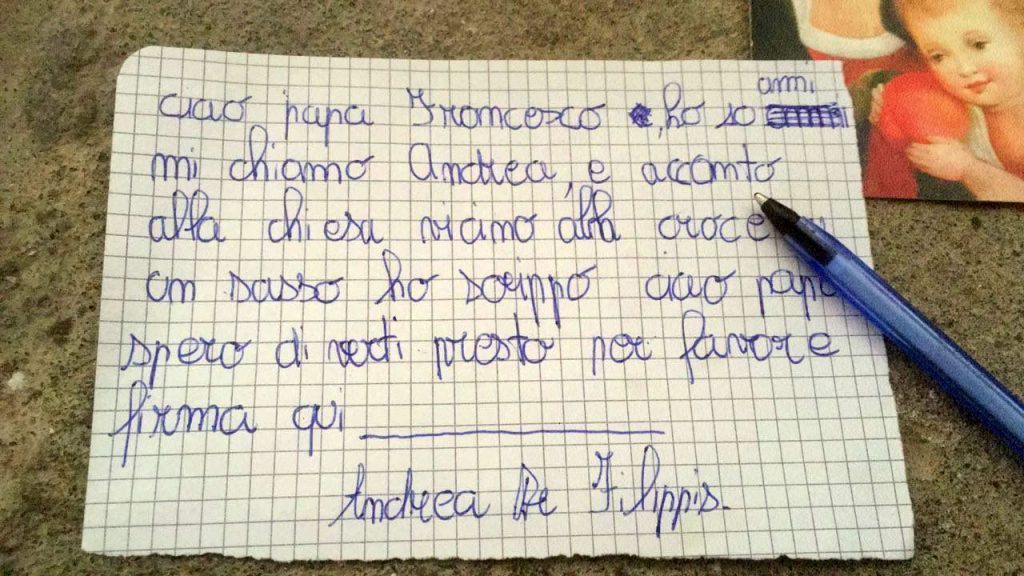 ciao papa Francesco, ho 10 anni
mi chiamo Andrea, e accanto
alla chiesa vicino alla croce
un sasso ho scrippo ciao papa
spero di verti presto per favore
firma qui
Andrea De Filippis.